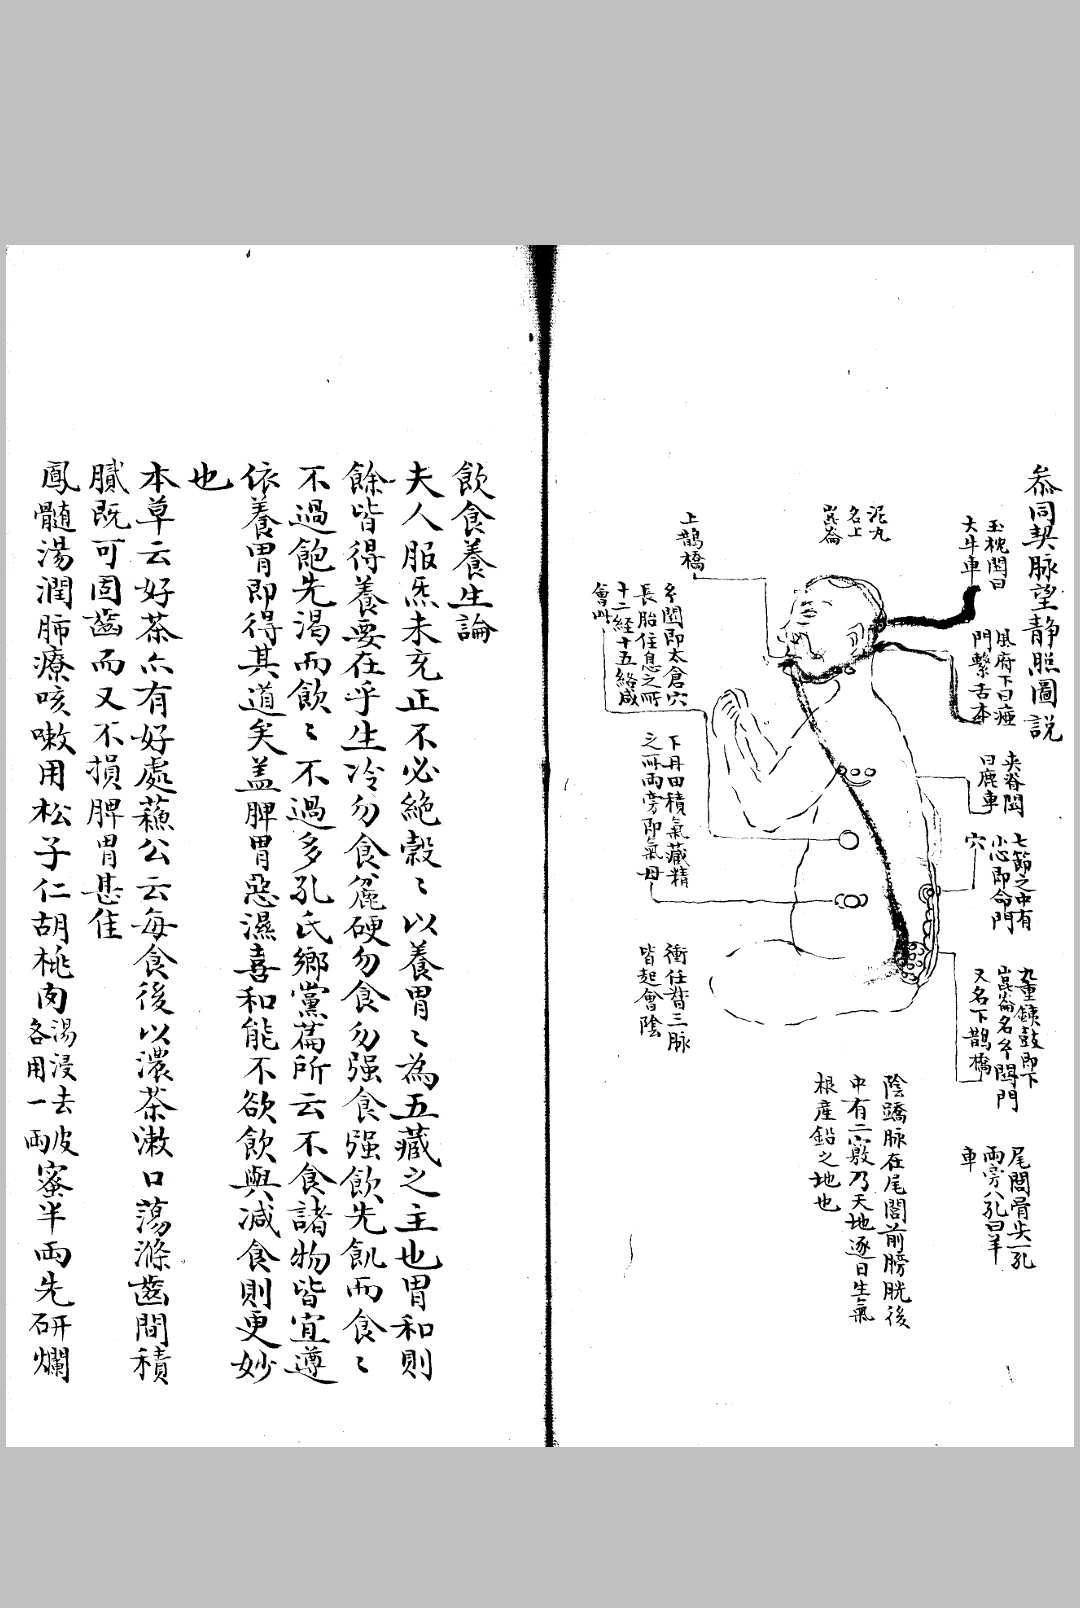 叅同契脉望静照圖説
玉枕関曰
大牛車
風府下曰瘂
門繫舌本
夾脊関
曰鹿車
七節之中有
小心即命門
穴
九重鉄鼓即下
崑崙名玄関門
又名下鵲橋
尾閭骨尖一孔
兩旁八孔曰羊
車
泥丸
名上
崑崙
上鵲橋
玄関即太倉穴
長胎住息之所
十二經十五絡咸
會此
下丹田積氣藏精
之所兩旁即氣母
衝任督三脉
皆起會陰
陰蹻脉在尾閭前膀胱後
中有二竅乃天地逐日生氣
根産鉛之地也
飲食養生論
夫人服炁未充正不必絶穀〻以養胃〻為五藏之主也胃和則
餘皆得養要在乎生冷勿食麄硬勿食勿强食强飲先飢而食〻
不過飽先渴而飲〻不過多孔氏鄉黨萹所云不食諸物皆宜遵
依養胃即得其道矣盖脾胃惡濕喜和能不欲飲與減食則更妙
也
本草云好茶亦有好處蘓公云每食後以濃茶漱口蕩滌齒間積
膩既可固齒而又不損脾胃甚佳
鳳髓湯潤肺療咳嗽用松子仁胡桃肉湯浸去皮各用一兩蜜半兩先研爛